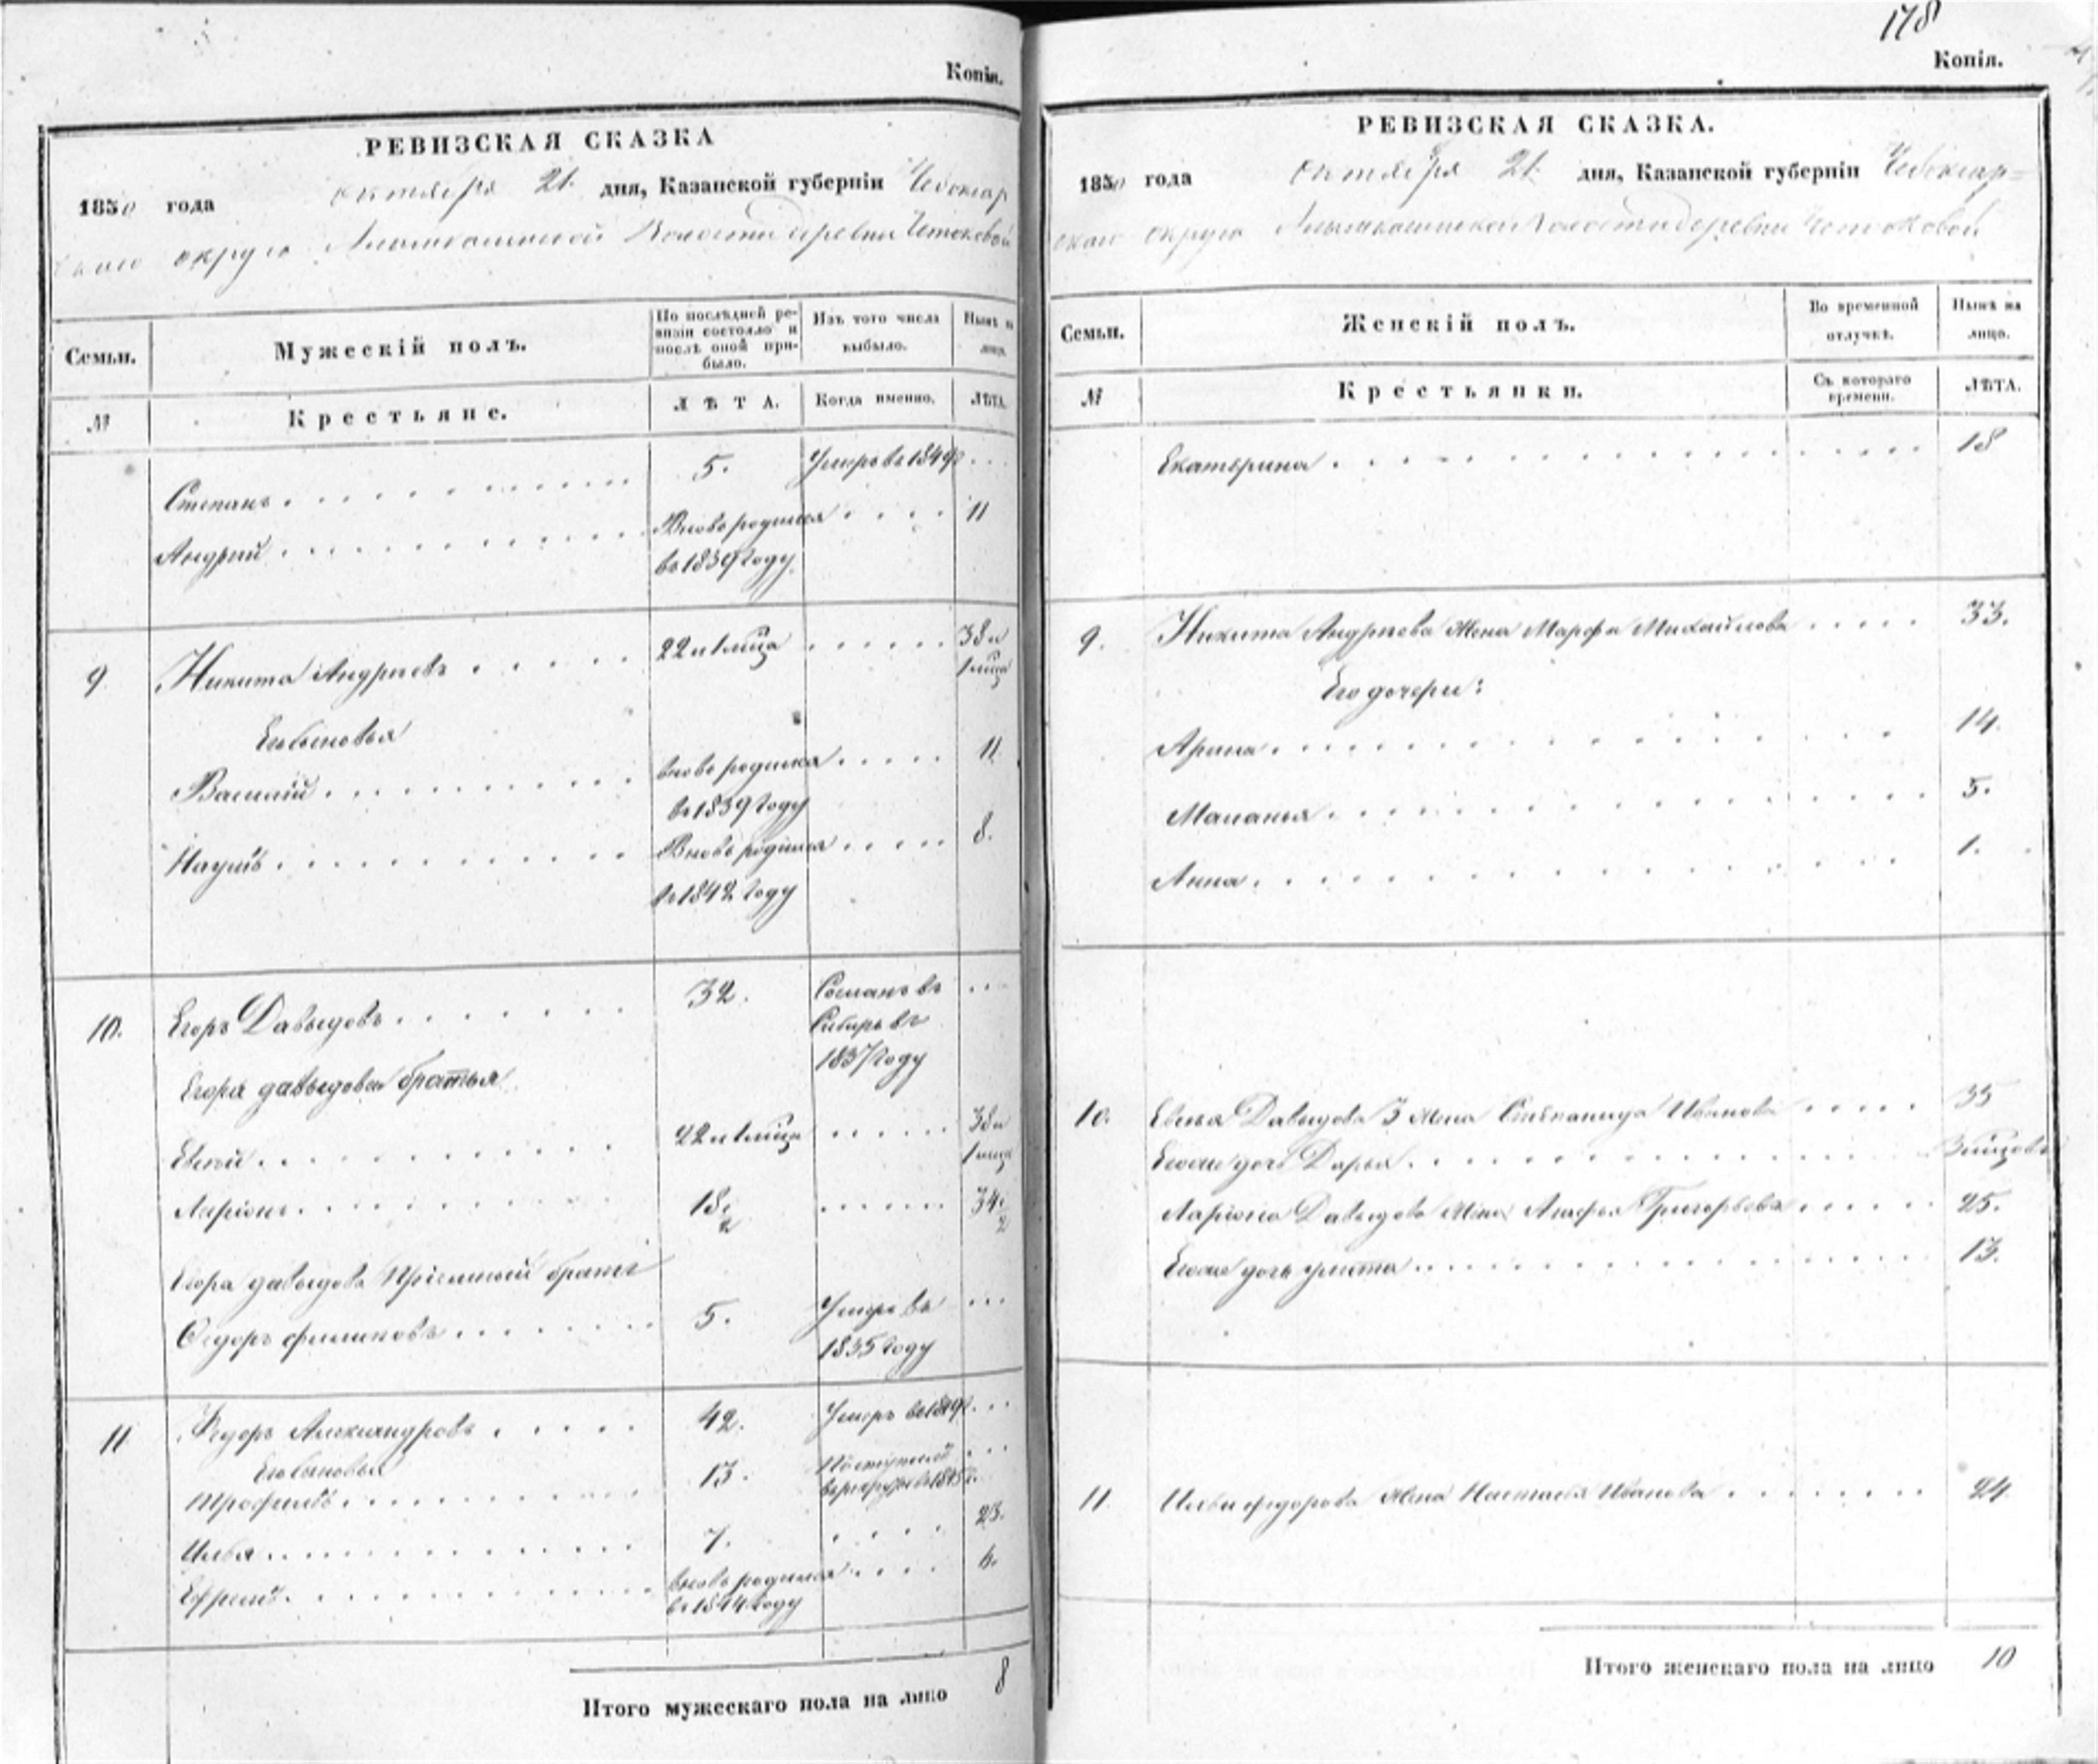 Копія.
РЕВИЗСКАЯ СКАЗКА
1850 года октября 21 дня, Казанской губерніи Чебоксар
скаго округа волости деревни
Семьи.
Мужескій полъ.
По послѣдней ре-
визіи состояло и
послѣ оной при-
было.
Изъ того числа
выбыло.
Нынѣ на
лицо.
№
Крестьяне.
ЛѢТА.
Когда именно.
ЛѢТА.
Степанъ 5. Умеръ въ 1849
Андрей Вновь родился 11
въ 1839 году
9 Никита Андреевъ 22 и 1 м̃ца 38 и
1 м̃ца
Его сыновья
Василій вновь родился 11
въ 1839 году
Наумъ Вновь родился 8.
въ 1842 году
10. Егоръ Давыдовъ 32. Сосланъ въ
Сибирь въ
1837 году
Егора давыдова братья
Евсей 22 и 1 м̃ца 38 и
1 м̃ца
Ларіонъ 18 1/2 34 1/2
Егора давыдова Пріемный братъ
Ѳедоръ филиповъ 5. Умеръ въ
1835 году
11 Ѳедоръ Александровъ 42. Умеръ въ 1849
Его сыновья
Трофимъ 13. Поступилъ
в рекруты в 1845 г.
Илья 7. 23.
Ефремъ вновь родился 6.
въ 1844 году
Итого мужескаго пола на лицо 8
178
Копія.
РЕВИЗСКАЯ СКАЗКА.
1850 года октября 21 дня, Казанской губерніи Чебоксар=
скаго округа волости деревни
Семьи.
Женскій полъ.
Во временной
отлучкѣ.
Нынѣ на
лицо.
№
Крестьянки.
Съ котораго
времени.
ЛѢТА.
Екатерина 18
9. Никита Андреева Жена Марфа Михайлова 33.
Его дочери:
Арина 14.
Маланья 5.
Анна 1.
10. Евсея Давыдова 3 жена Степанида Иванова 35
Евсея дочь Дарья 3 м̃цовъ
Ларіона Давыдова Жена Агафья Григорьева 25.
дочь улита 13.
11. Ильи федорова жена Настасья Иванова 24
Итого женскаго пола на лицо 10